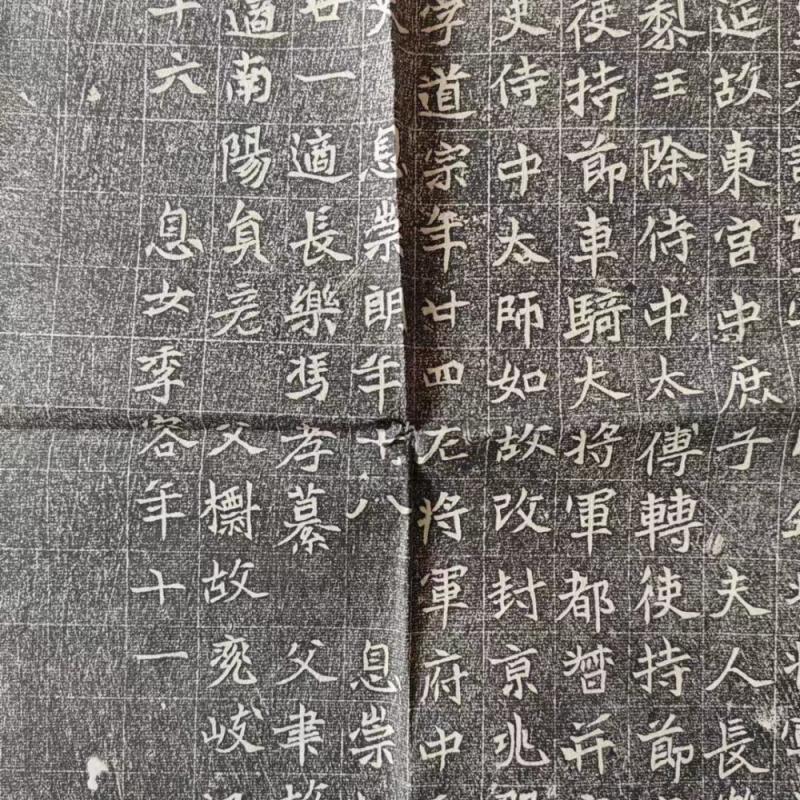 延故東宮中庶子 夫人長
黎王除侍中太傅轉使持節
使持節車騎大將軍都督并
史侍中太師如故改封京兆
字道宗年廿四左將軍府中
息崇朗年十八 息崇
廿一適長樂馮孝纂 父聿故
適南陽員彥 父 故兗岐
十六 息女季容年十一